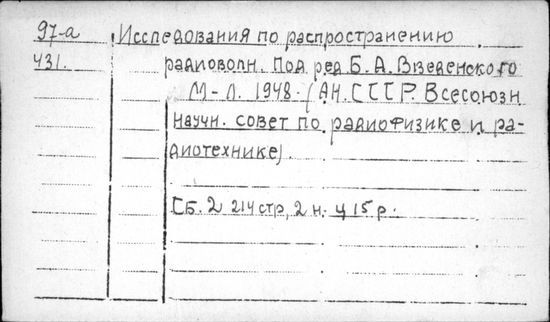 97-а Исследования по распространению
431. радиоволн. Под ред Б. А. Введенского
М-Л. 1948. (АН. СССР. Всесоюзн
научн. совет по радиофизике и ра-
диотехнике).
Сб. 2 214 стр, 2 н. ц 15 р.